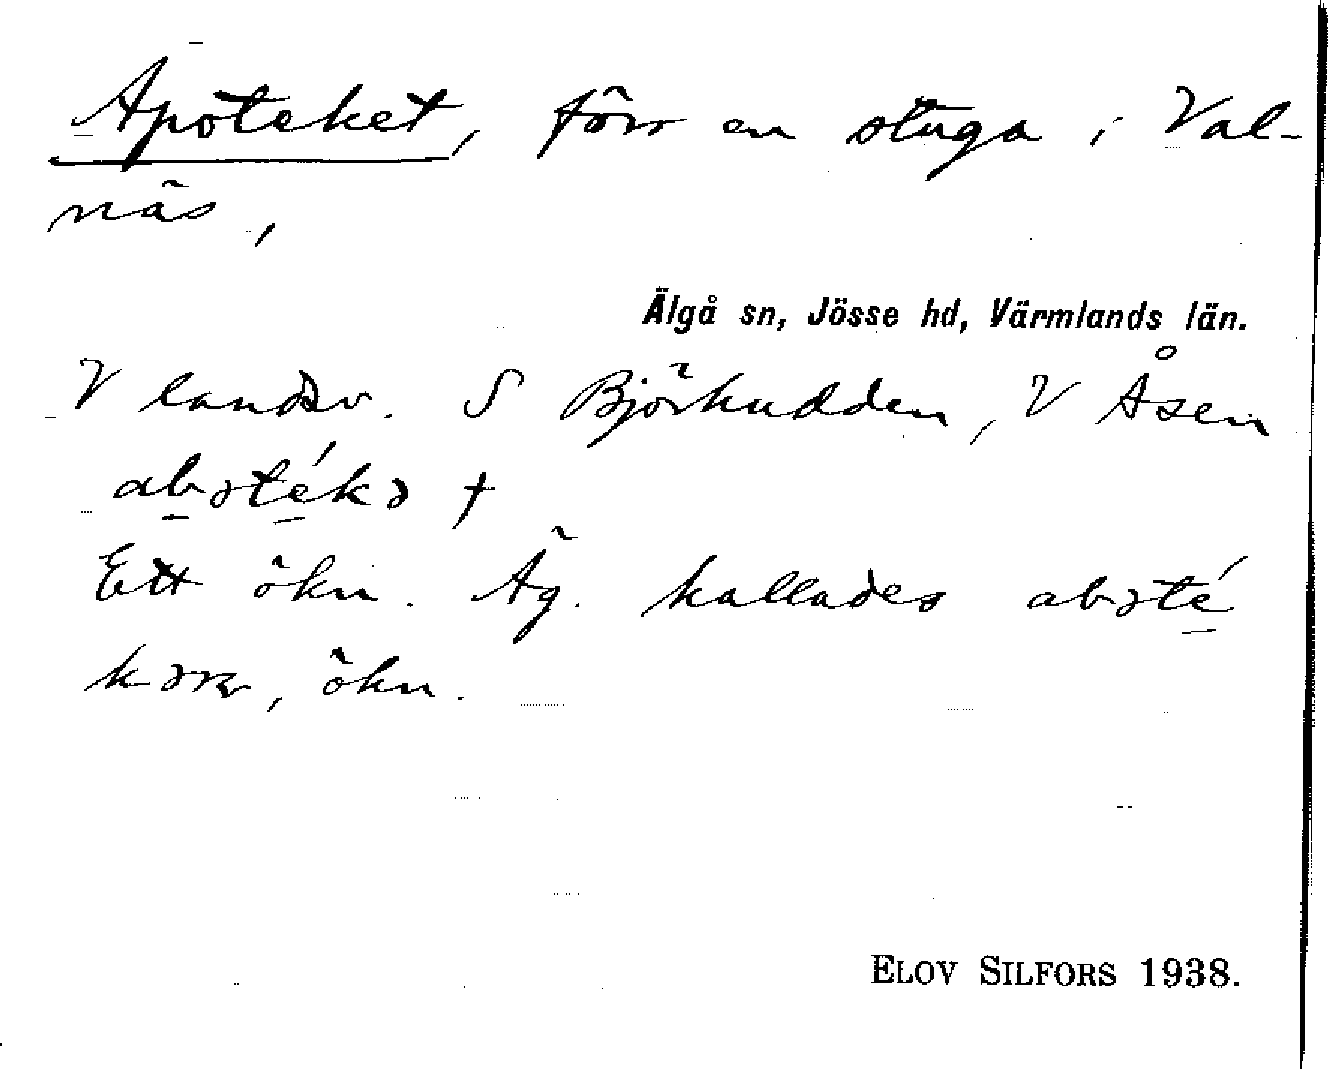 Apoteket, förr en stuga i Val-
näs,
Älgå sn, Jösse hd, Värmlands län.
V landsv. S Björkudden, V Åsen
abəték ə †
Ett ökn. Äg. kallades abəté
kərr, ökn.
ELOV SILFORS 1938.